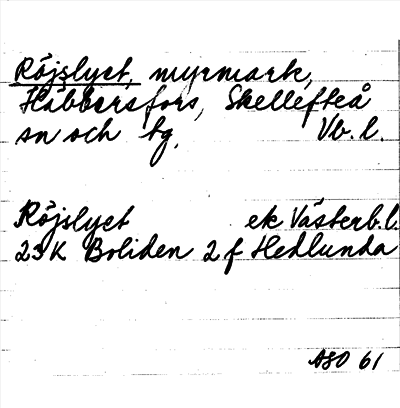 Röjslyet, myrmark,
Häbbersfors, Skellefteå
sn och tg, Vb. l.
Röjslyet ek Västerb.l.
23K Boliden 2 f Hedlunda
ASO 61